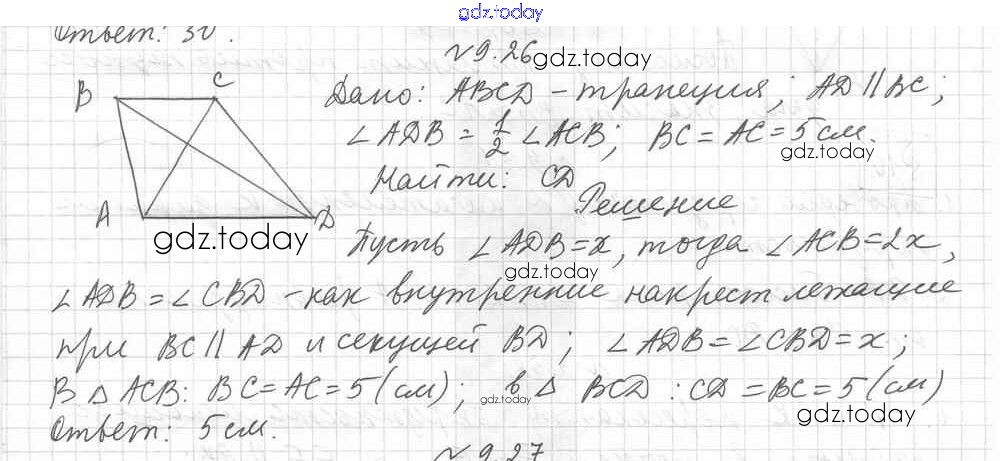 gdz.today
Ответ: 30°.
№ 9.26 gdz.today
B C Дано: ABCD - трапеция; AD || BC;
∠ADB = 1/2 ∠ACB; BC = AC = 5 см.
gdz.today
Найти: CD
Решение
A D
gdz.today
Пусть ∠ADB = x, тогда ∠ACB = 2x,
gdz.today
∠ADB = ∠CBD - как внутренние накрест лежащие
при BC || AD и секущей BD; ∠ADB = ∠CBD = x;
В △ ACB: BC = AC = 5 (см); в △ BCD: CD = BC = 5 (см)
gdz.today
gdz.today
Ответ: 5 см.
№ 9.27